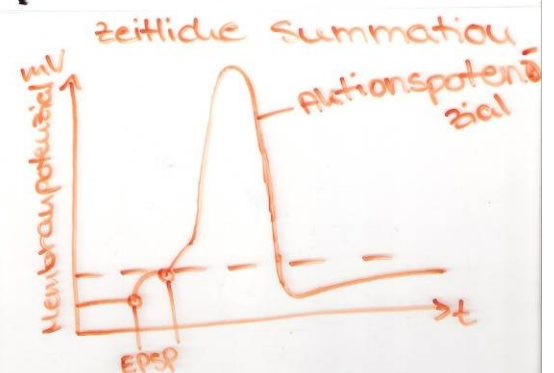 zeitliche Summation
mV
Membranpotenzial
Aktionspoten
zial
t
EPSP